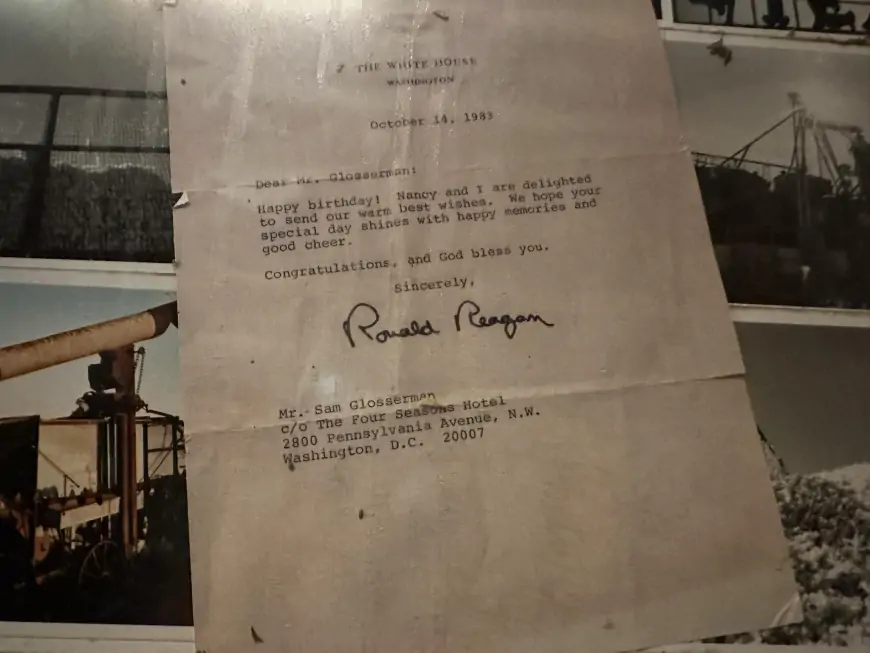 THE WHITE HOUSE
WASHINGTON
October 14, 1983
Dear Mr. Glosserman:
Happy birthday! Nancy and I are delighted
to send our warm best wishes. We hope your
special day shines with happy memories and
good cheer.
Congratulations, and God bless you.
Sincerely,
Ronald Reagan
Mr. Sam Glosserman
c/o The Four Seasons Hotel
2800 Pennsylvania Avenue, N.W.
Washington, D.C. 20007